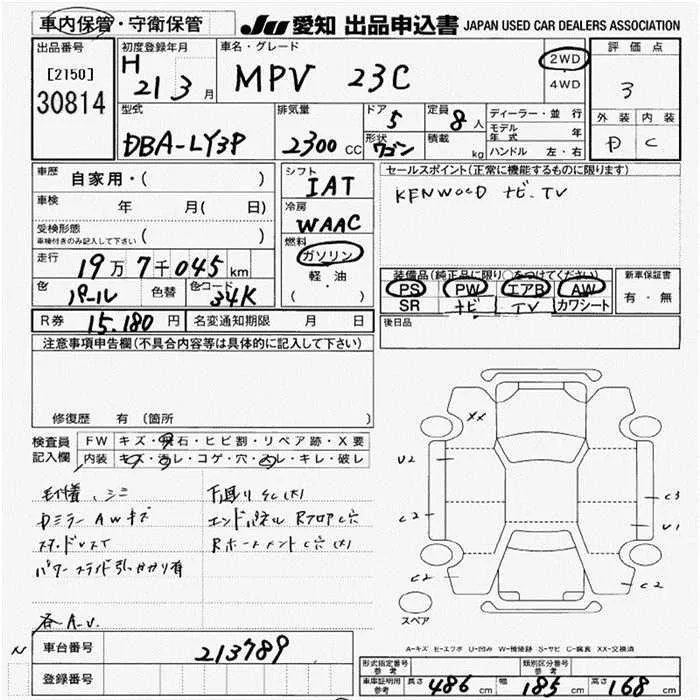 車内保管・守衛保管 JU 愛知 出品申込書 JAPAN USED CAR DEALERS ASSOCIATION
出品番号 [2150] 30814
初度登録年月 H 21 3月
車名・グレード MPV 23C
2WD
4WD
評価点 3
外装 内装
D C
型式 DBA-LY3P
排気量 2300 CC
ドア 5
形状 ワゴン
定員 8人
積載 kg
ディーラー・並行
モデル年式 年
ハンドル 左・右
車歴 自家用・( )
車検 年 月( 日)
受検形態 車検付きのみ記入して下さい ( )
走行 19万7千045km
色 パール 色替 色コード 34K
シフト IAT
冷房 WAAC
燃料 ガソリン
軽・油
( )
セールスポイント(正常に機能するものに限ります)
KENWOOD ナビ.TV
装備品(純正品に限り○をつけてください)
PS PW エアB AW
SR ナビ TV カワシート
新車保証書
有・無
R券 15,180円 名変通知期限 月 日
後日品
注意事項申告欄(不具合内容等は具体的に記入して下さい)
修復歴 有 (箇所 )
検査員記入欄
FW キズ・飛石・ヒビ割・リペア跡・X要
内装 キズ・汚レ・コゲ・穴・スレ・キレ・破レ
DミラーAWキズ
パワースライド引っかかり有
下廻りSC(大)
エンドパネルRフロアC穴
XX
U2
C2
C2
C3
U1
C2
スペア
A-キズ E-エクボ U-凹み W-補修跡 S-サビ C-腐食 XX-交換済
車台番号 213789
登録番号
形式指定番号 参考
類別区分番号 参考
車庫証明用 参考 長さ 486cm 幅 185cm 高さ 168cm